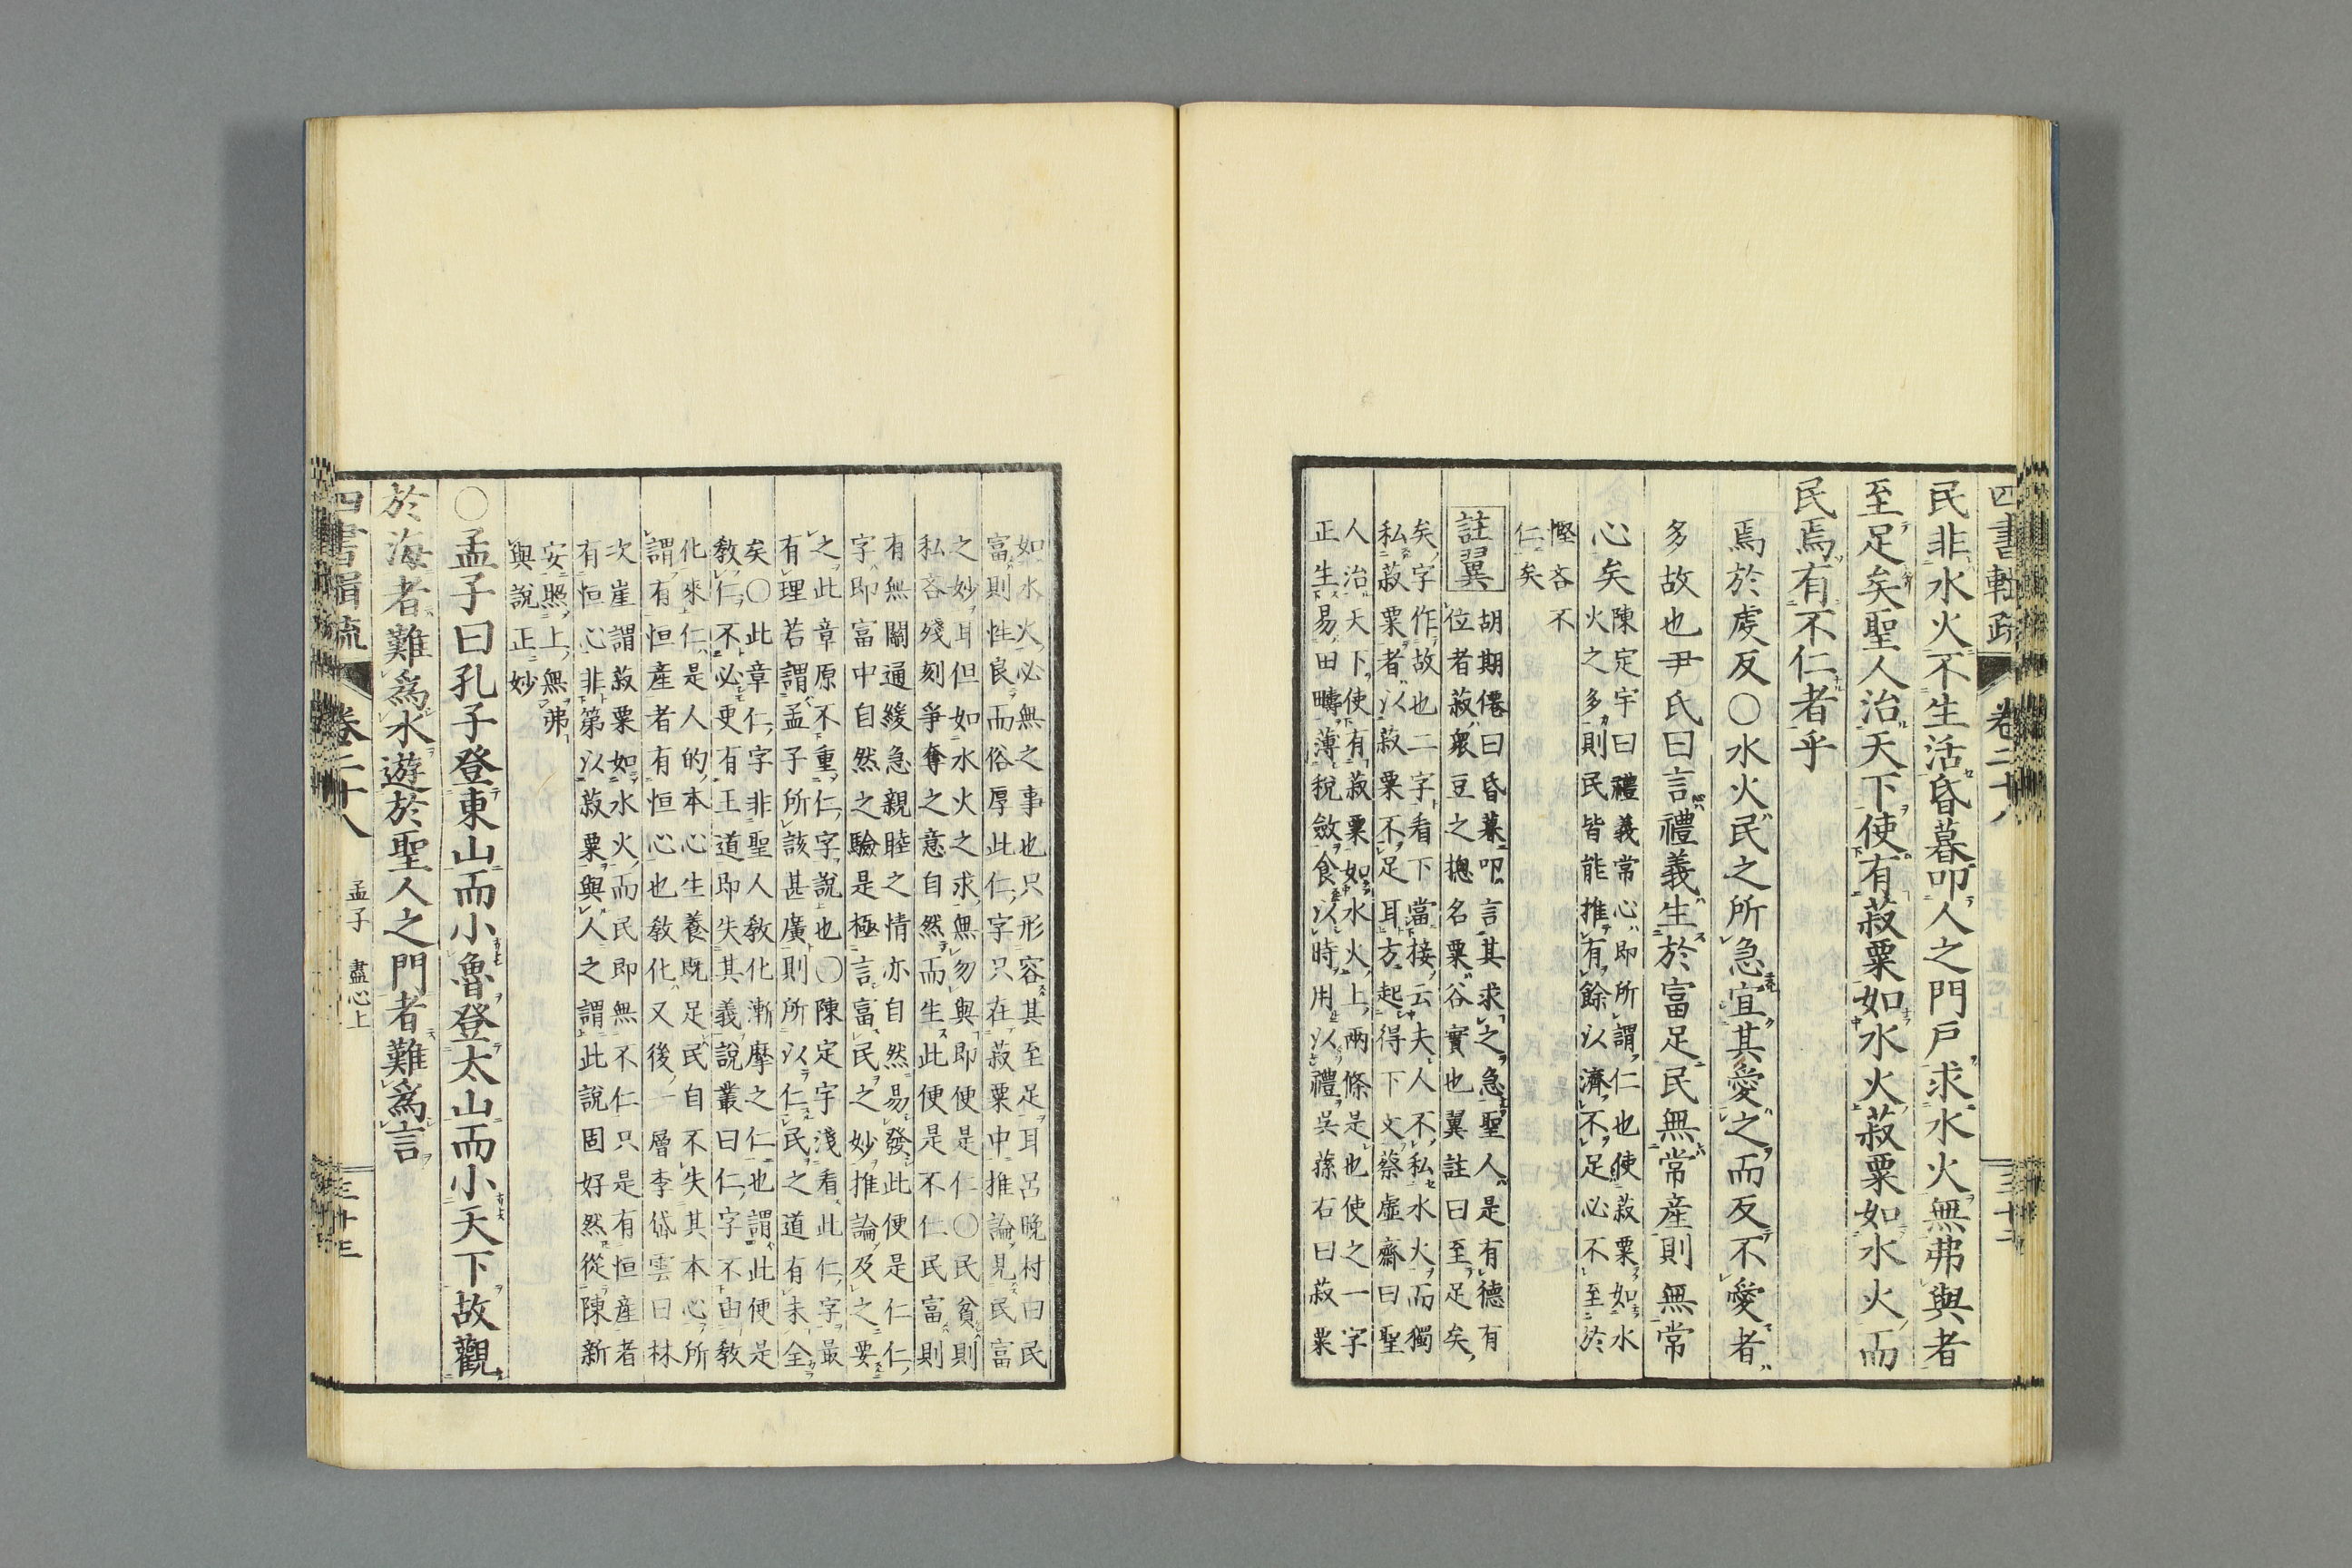 四書輯疏 卷二十八 孟子 盡心上
民非水火不生活昏暮叩人之門戸求水火無弗與者
至足矣聖人治天下使有菽粟如水火菽粟如水火而
民焉有不仁者乎
焉於虔反○水火民之所急宜其愛之而反不愛者
多故也尹氏曰言禮義生於富足民無常産則無常
心矣
陳定宇曰禮義常心即所謂仁也使菽粟如水
火之多則民皆能推有餘以濟不足必不至於
慳吝不
仁矣
註翼
胡期僊曰昏暮叩言其求之急聖人是有德有
位者菽衆豆之摠名粟谷實也翼註曰至足矣
矣字作故也二字看下當接云夫人不私水火而獨
私菽粟者以菽粟不足耳方起得下文蔡虛齋曰聖
人治天下使有菽粟如水火上兩條是也使之一字
正生易田疇薄稅斂食以時用以禮吳蓀右曰菽粟
如水火必無之事也只形容其至足耳呂晚村曰民
富則性良而俗厚此仁字只在菽粟中推論見民富
之妙耳但如水火之求無勿與即便是仁○民貧則
私吝殘刻爭奪之意自然而生此便是不仁民富則
有無關通緩急親睦之情亦自然易發此便是仁仁
字即富中自然之驗是極言富民之妙推論及之要
之此章原不重仁字說也○陳定宇淺看此仁字最
有理若謂孟子所該甚廣則所以仁民之道有未全
矣○此章仁字非聖人敎化漸摩之仁也謂此便是
敎仁不必更有王道即失其義說叢曰仁字不由敎
化來仁是人的本心生養既足民自不失其本心所
謂有恒産者有恒心也敎化又後一層李岱雲曰林
次崖謂菽粟如水火而民即無不仁只是有恒産者
有恒心非第以菽粟與人之謂此說固好然從陳新
安照上無弗
與說正妙
○孟子曰孔子登東山而小魯登太山而小天下故觀
於海者難爲水遊於聖人之門者難爲言
四書輯疏 卷二十八 孟子 盡心上 三十三